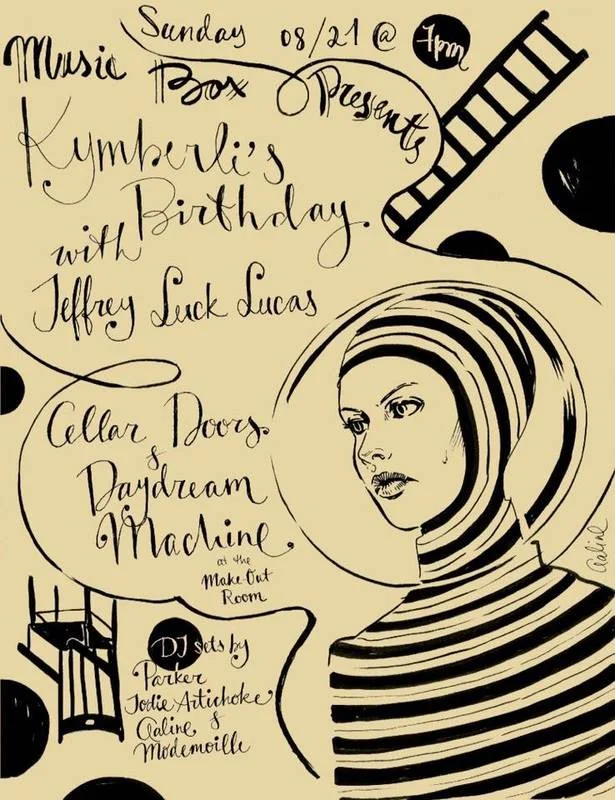 Sunday 08/21 @ 7pm
Music Box Presents
Kymberli's
Birthday.
with
Jeffrey Luck Lucas
Cellar Doors.
&
Daydream
Machine.
at the
Make-Out
Room
DJ sets by
Parker
Jodie Artichoke,
Qaline &
Modemoille
Qaline